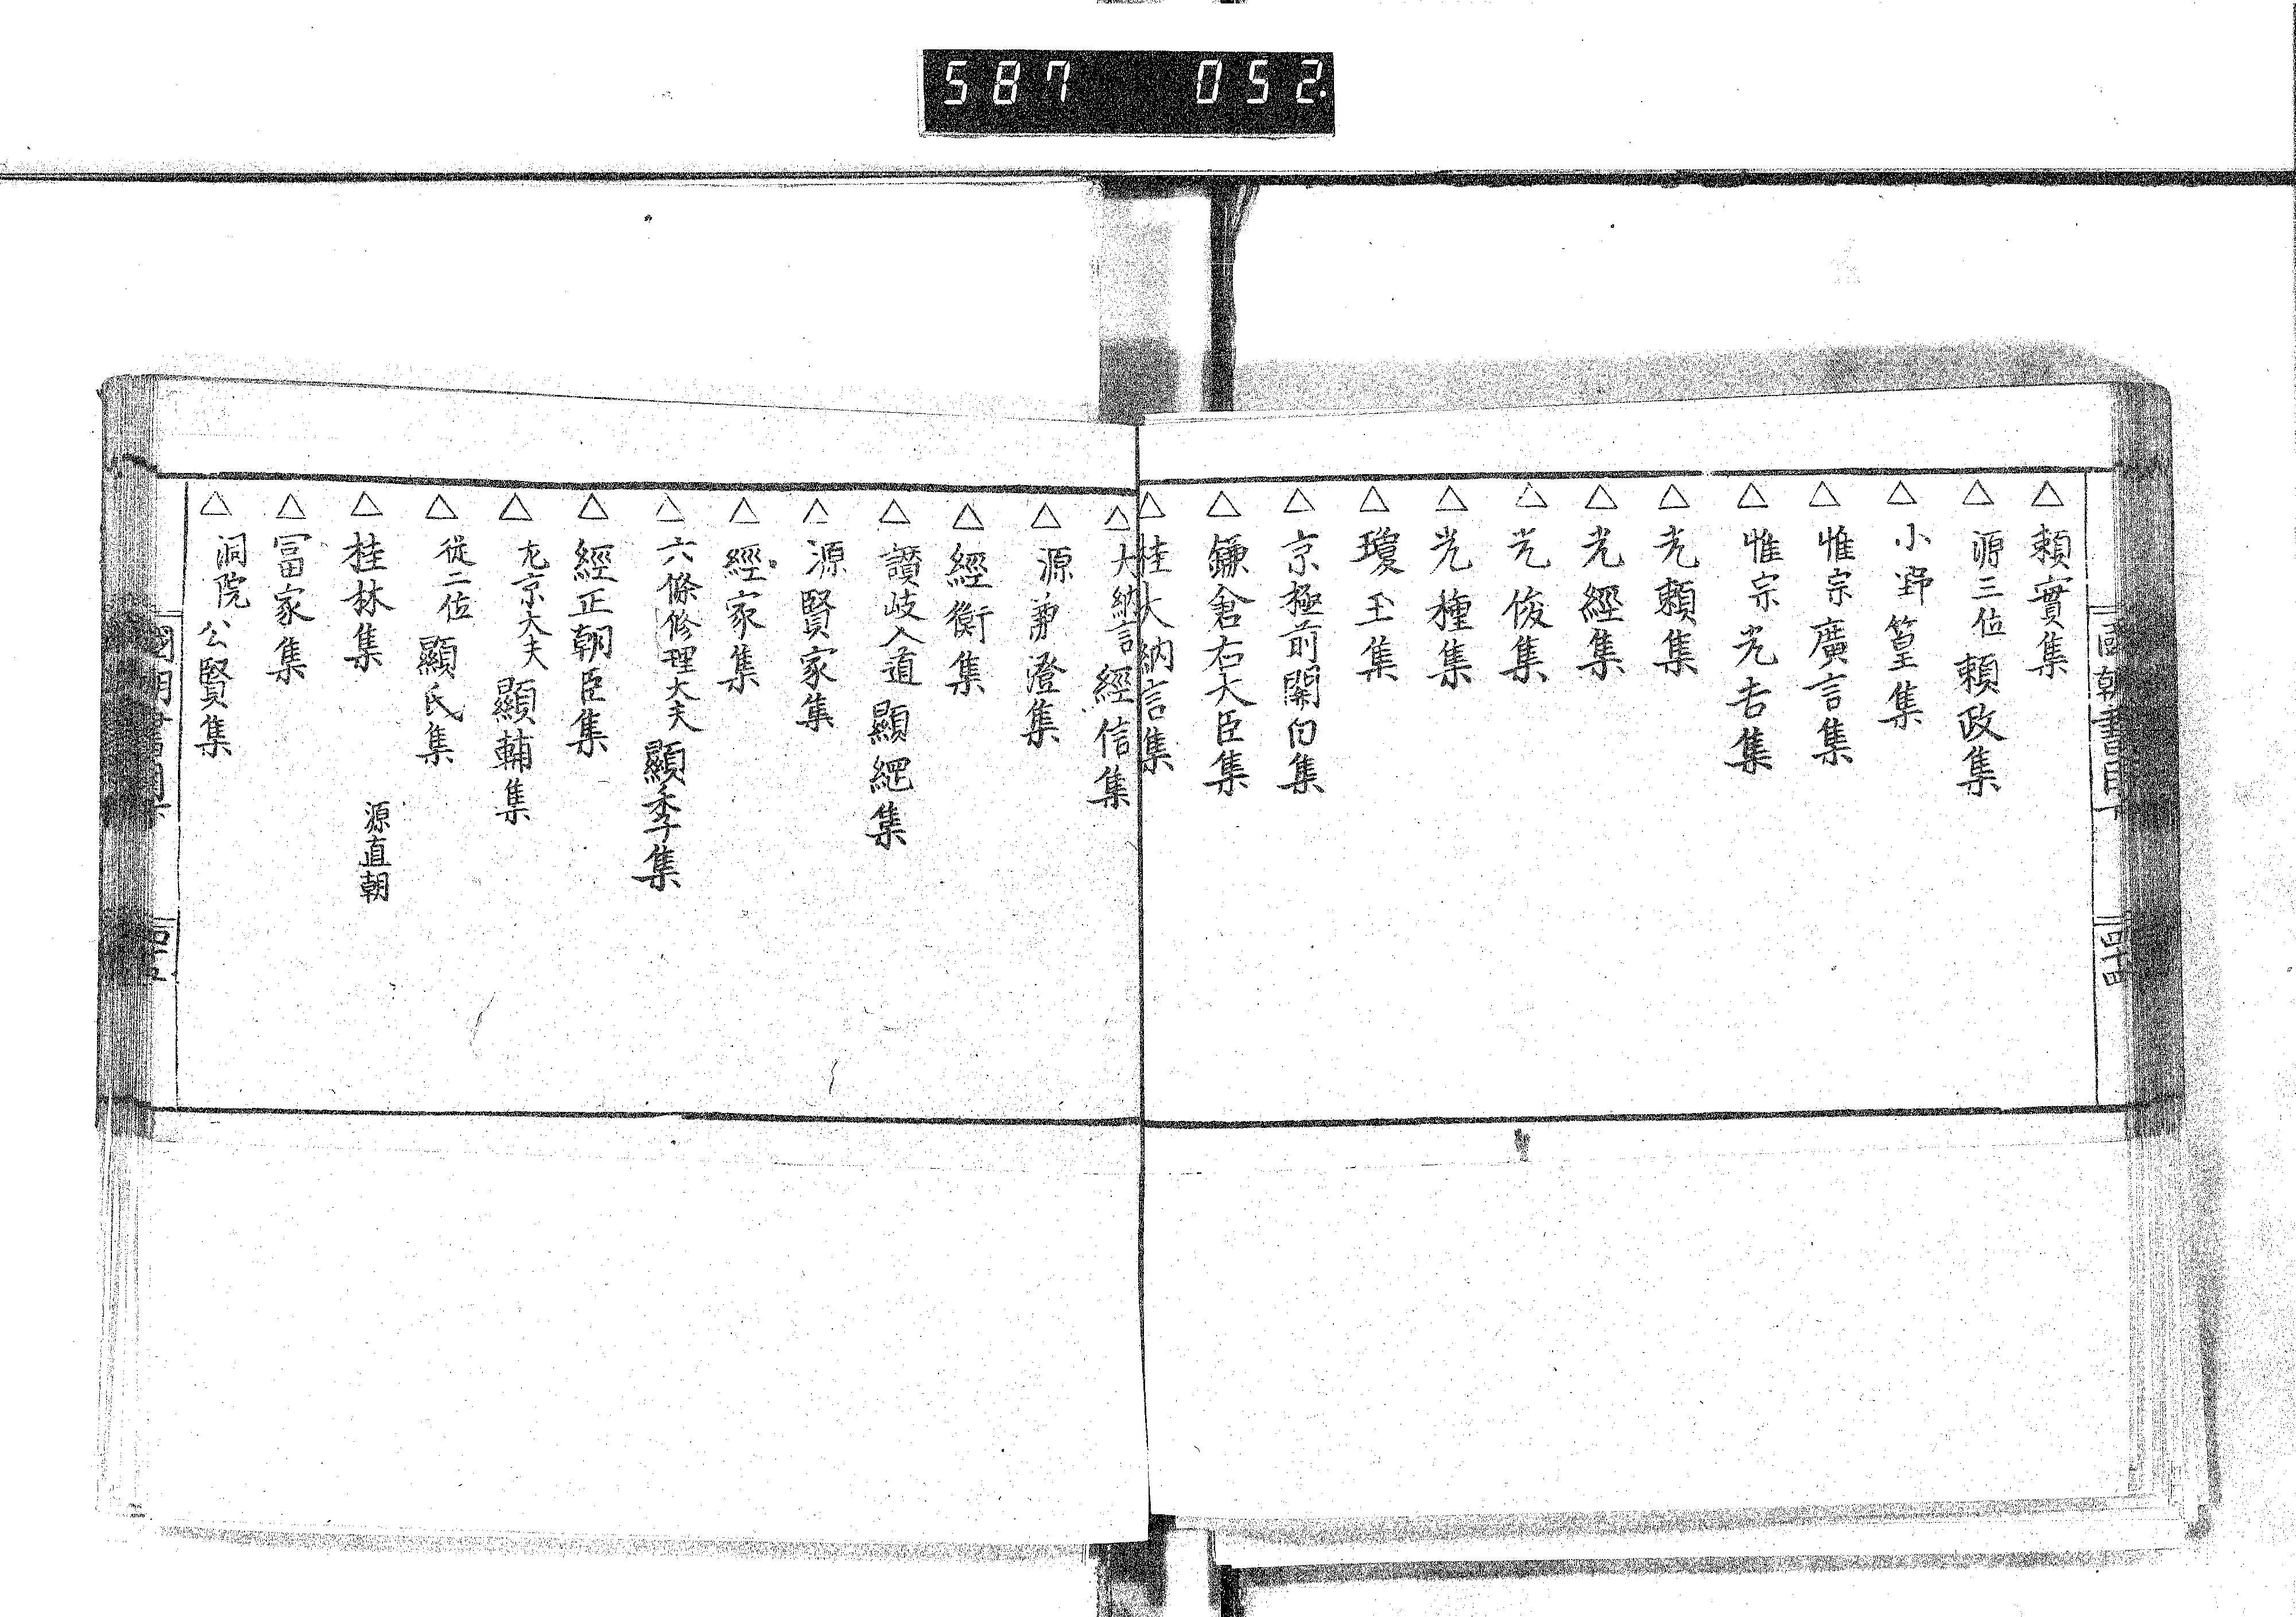 587 052.
國朝書目下
四十四
△頼實集
△源三位頼政集
△小野篁集
△惟宗廣言集
△惟宗光吉集
△光頼集
△光經集
△光俊集
△光種集
△瓊玉集
△京極前關白集
△鎌倉右大臣集
△桂大納言集
△大納言經信集
△源兼澄集
△經衡集
△讃岐入道顯綱集
△源賢家集
△經家集
△六條修理大夫顯季集
△經正朝臣集
△左京大夫顯輔集
△從二位顯氏集
△桂林集 源直朝
△冨家集
△洞院公賢集